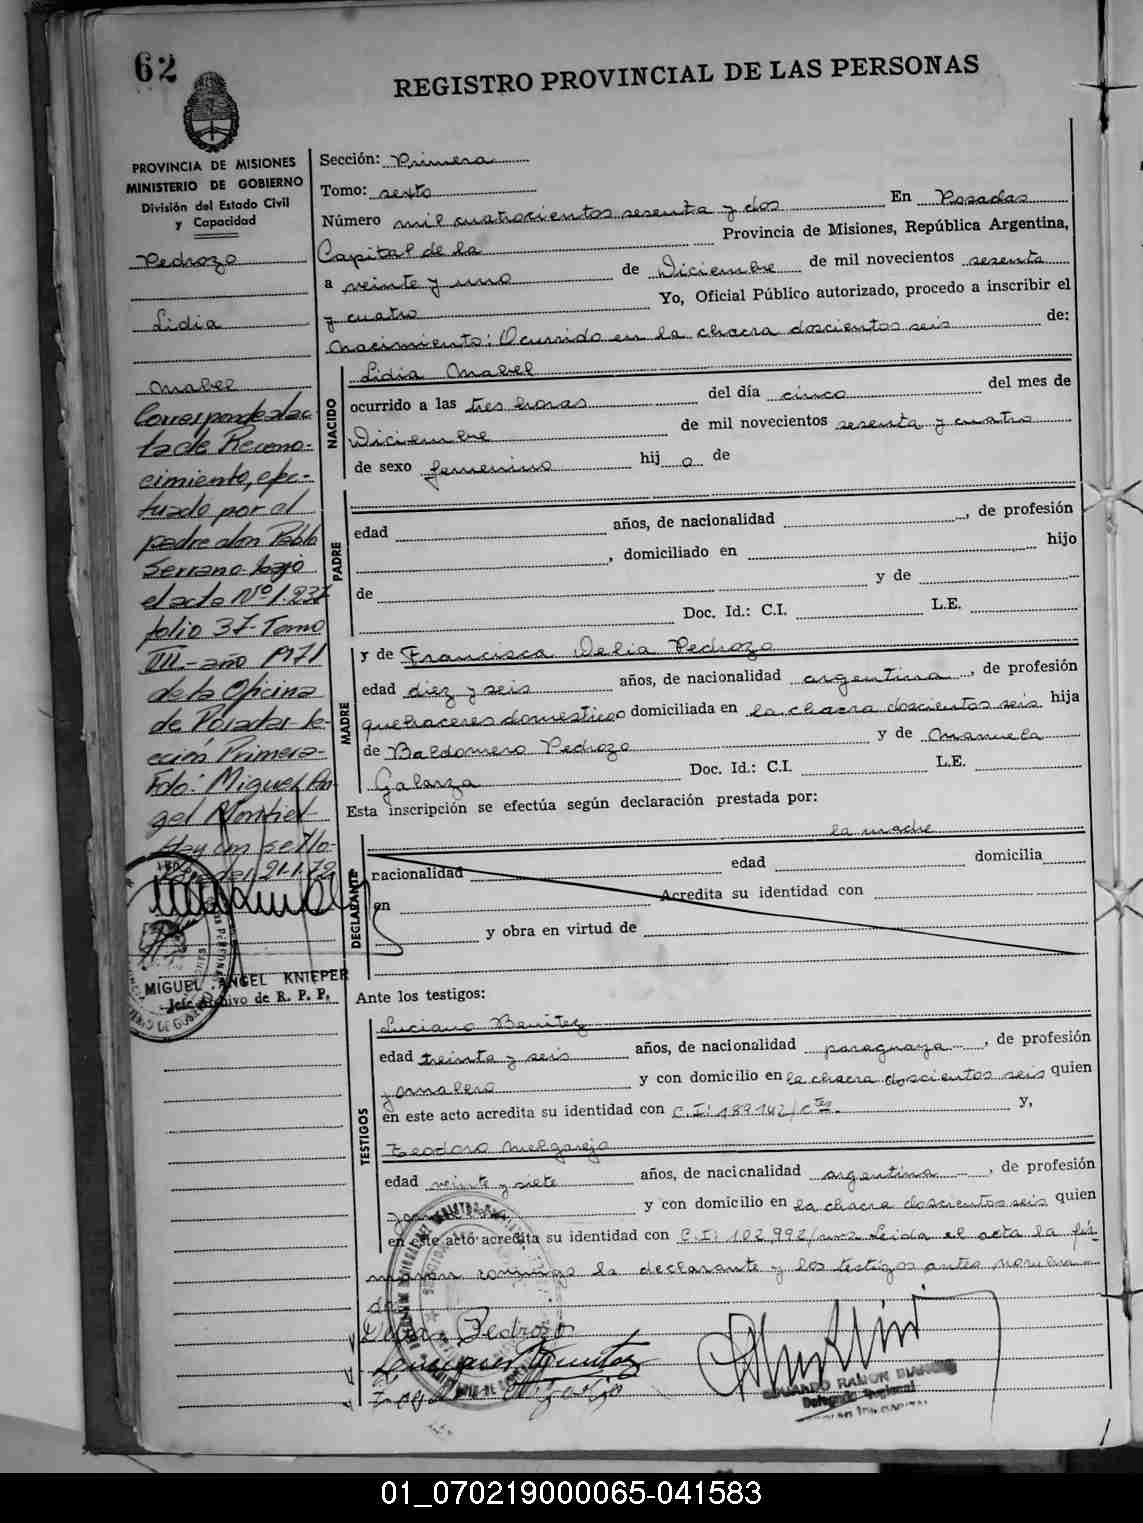 62
REGISTRO PROVINCIAL DE LAS PERSONAS
PROVINCIA DE MISIONES
MINISTERIO DE GOBIERNO
División del Estado Civil
y Capacidad
Pedrozo
Lidia
Mabel
Corresponde al ac-
ta de Recono-
cimiento, efec-
tuado por el
padre don Pablo
Serrano bajo
el acta Nº 1.237
folio 37- Tomo
III - año 1971
de la Oficina
de Posadas Se-
cción Primera-
Fdo: Miguel An-
gel Montiel-
Hay un sello-
21-1-72
MIGUEL ANGEL KNIEPER
Jefe Archivo de R. P. P.
Sección: Primera
Tomo: sexto
Número mil cuatrocientos sesenta y dos En Posadas
Capital de la Provincia de Misiones, República Argentina,
a veinte y uno de Diciembre de mil novecientos sesenta
y cuatro Yo, Oficial Público autorizado, procedo a inscribir el
Nacimiento: Ocurrido en la chacra doscientos seis de:
NACIDO
Lidia Mabel
ocurrido a las tres horas del día cinco del mes de
Diciembre de mil novecientos sesenta y cuatro
de sexo femenino hij a de
PADRE
edad años, de nacionalidad , de profesión
, domiciliado en hijo
de y de
Doc. Id.: C.I. L.E.
MADRE
y de Francisca Delia Pedrozo
edad diez y seis años, de nacionalidad argentina , de profesión
quehaceres domesticos domiciliada en la chacra doscientos seis hija
de Baldomero Pedrozo y de Manuela
Galarza Doc. Id.: C.I. L.E.
Esta inscripción se efectúa según declaración prestada por:
la madre
DECLARANTE
nacionalidad edad domicilia
en Acredita su identidad con
y obra en virtud de
Ante los testigos:
TESTIGOS
Luciano Benitez
edad treinta y seis años, de nacionalidad paraguaya , de profesión
jornalero y con domicilio en la chacra doscientos seis quien
en este acto acredita su identidad con C.I: 189.142/ctes. y,
Teodoro Melgarejo
edad veinte y siete años, de nacionalidad argentina , de profesión
y con domicilio en la chacra doscientos seis quien
en este acto acredita su identidad con C.I: 102.992/mns Leida el acta la fir-
maron conmigo la declarante y los testigos antes nombra-
dos
Delia Pedrozo
EDUARDO RAMON BIANCHI
Delegado Regional
01_070219000065-041583